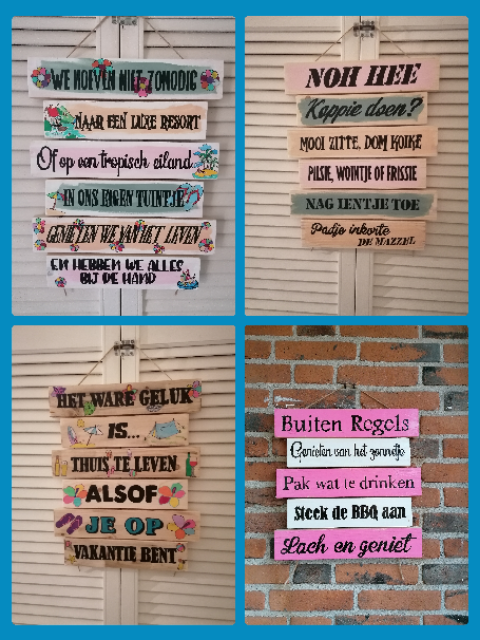 WE HOEVEN NIET ZONODIG
NAAR EEN LUXE RESORT
Of op een tropisch eiland
IN ONS EIGEN TUINTJE
GENIETEN WE VAN HET LEVEN
EN HEBBEN WE ALLES
BIJ DE HAND
NOH HEE
Koppie doen?
MOOI ZITTE, DOM KOIKE
PILSIE, WOINTJE OF FRISSIE
NAG IENTJE TOE
Padjo inkorte
DE MAZZEL
HET WARE GELUK
IS...
THUIS TE LEVEN
ALSOF
JE OP
VAKANTIE BENT
Buiten Regels
Genieten van het zonnetje
Pak wat te drinken
Steek de BBQ aan
Lach en geniet